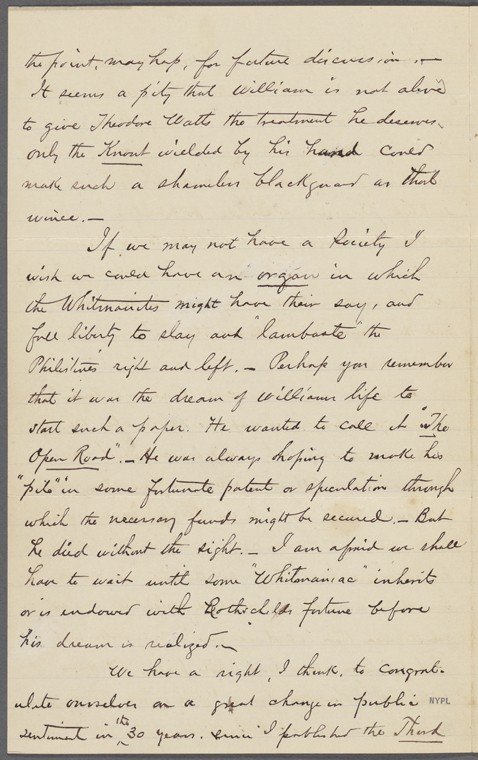 the point, mayhap, for future discussion. —
It seems a pity that William is not alive
to give Theodore Watts the treatment he deserves.
only the Knout wielded by his hand could
make such a shameless blackguard as that
wince. —
If we may not have a Society I
wish we could have an organ in which
the Whitmanites might have their say, and
full liberty to slay and "lambaste" the
Philistines right and left. — Perhaps you remember
that it was the dream of Williams life to
start such a paper. He wanted to call it "The
Open Road". — He was always hoping to make his
"pile" in some fortunate patent or speculation through
which the necessary funds might be secured. — But
he died without the sight. — I am afraid we shall
have to wait until some "Whitmaniac" inherits
or is endowed with Rothschilds fortune before
his dream is realized. —
We have a right, I think, to congrat-
ulate ourselves on a great change in public
sentiment in the 30 years since I published the Third
NYPL